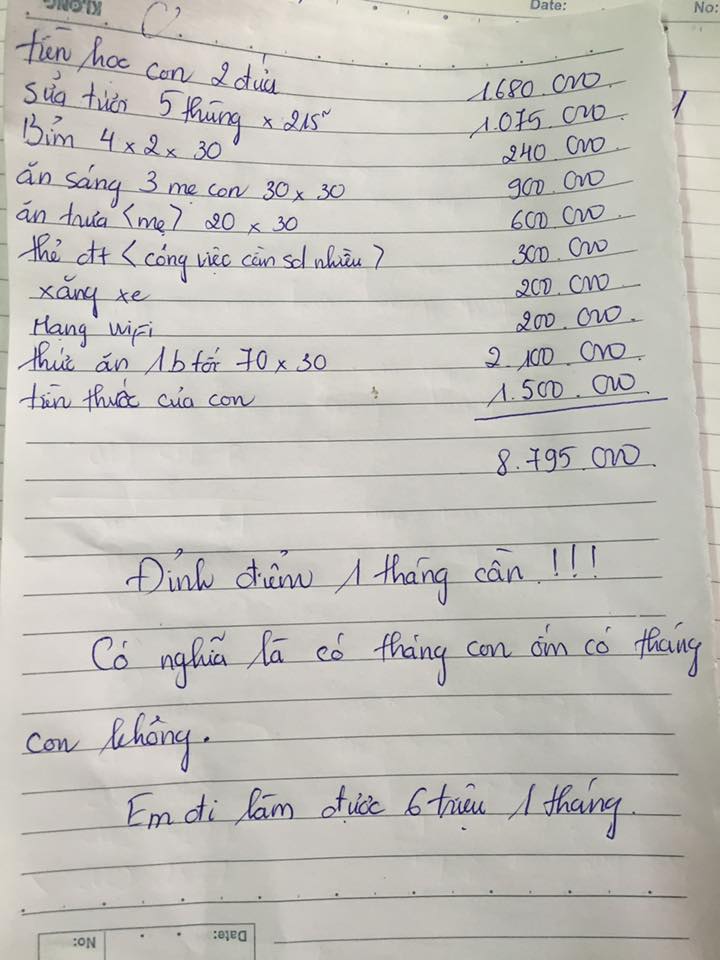 KLONG
Date:
No:
tiền học con 2 đứa 1.680.000
sửa tươi 5 thùng x 215ⁿ 1.075.000
Bỉm 4 x 2 x 30 240.000
ăn sáng 3 mẹ con 30 x 30 900.000
ăn trưa <mẹ> 20 x 30 600.000
thẻ đt < công việc cần sd nhiều > 300.000
xăng xe 200.000
Mạng wiFi 200.000
thức ăn 1b tối 70 x 30 2.100.000
tiền thuốc của con 1.500.000
8.795.000
Đỉnh điểm 1 tháng cần !!!
Có nghĩa là có tháng con ốm có tháng
con không.
Em đi làm được 6 triệu 1 tháng.
No:
Date: